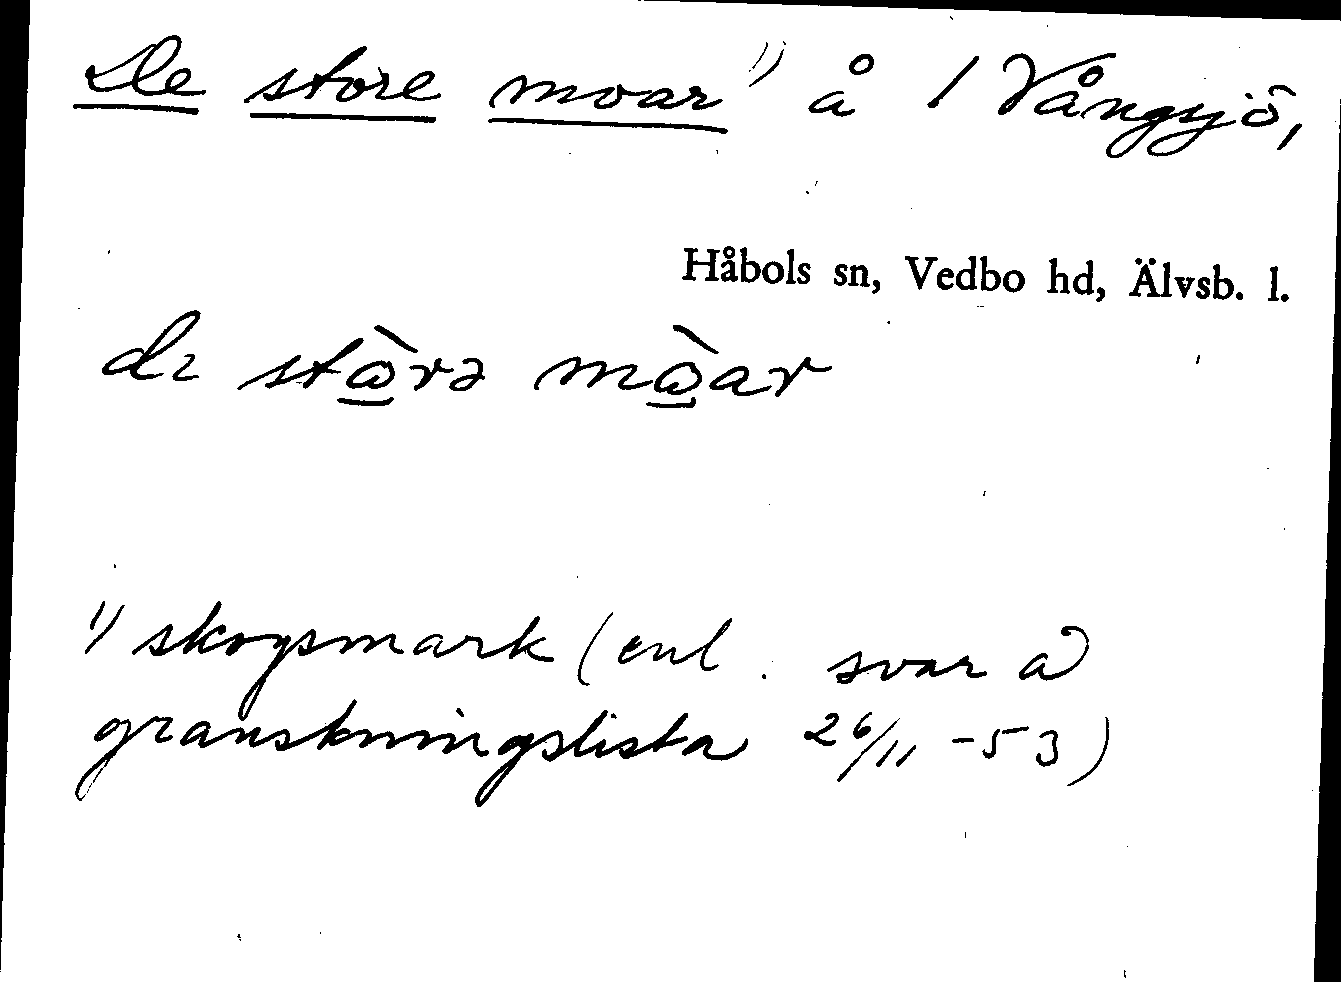 De store moar ¹⁾ å 1 Vångsjö,
Håbols sn, Vedbo hd, Älvsb. l.
¹⁾ skogsmark (enl. svar å
granskningslista 26/11 -53)